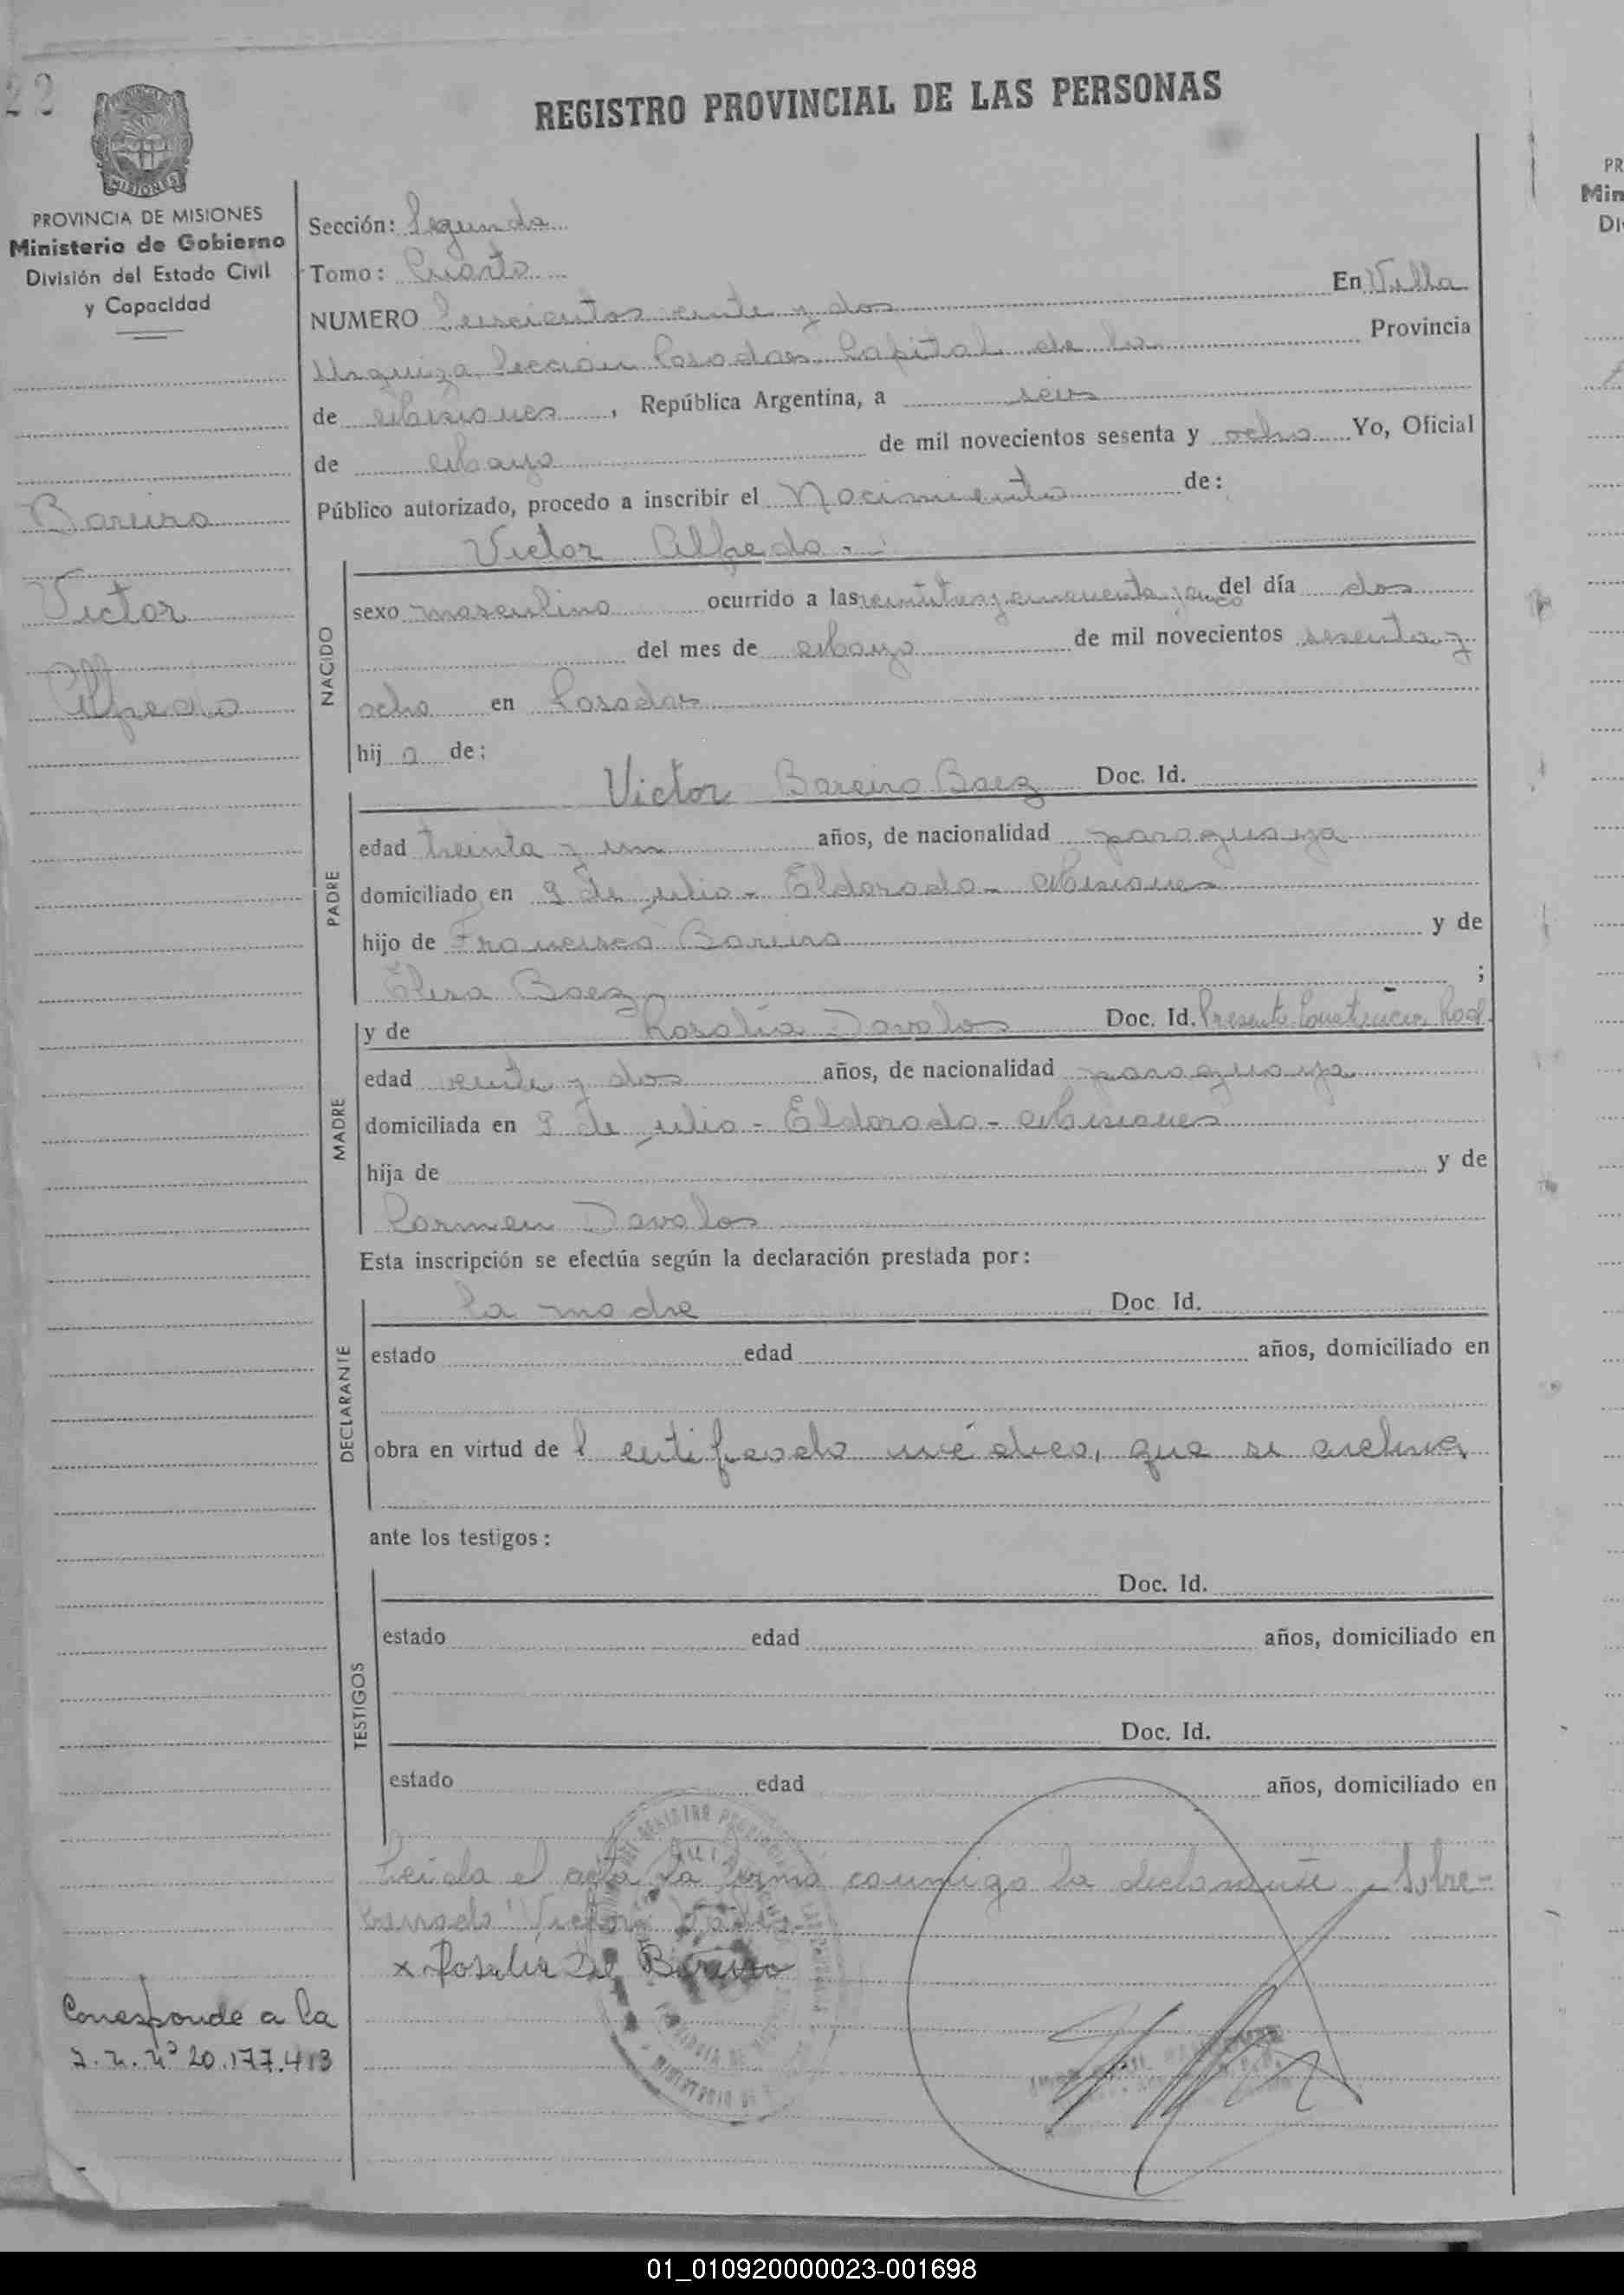 22
REGISTRO PROVINCIAL DE LAS PERSONAS
MISIONES
PROVINCIA DE MISIONES
Ministerio de Gobierno
División del Estado Civil
y Capacidad
Bareiro
Victor
Alfredo
Sección: Segunda
Tomo: Cuarto
NUMERO Seiscientos veinte y dos En Villa
Urquiza Sección Posadas Capital de la Provincia
de Misiones, República Argentina, a seis
de Mayo de mil novecientos sesenta y ocho Yo, Oficial
Público autorizado, procedo a inscribir el Nacimiento de:
Victor Alfredo.-
NACIDO
sexo masculino ocurrido a las veintitres y cincuenta y cinco del día dos
del mes de Mayo de mil novecientos sesenta y
ocho en Posadas
hij o de:
PADRE
Victor Bareiro Baez Doc. Id.
edad treinta y un años, de nacionalidad paraguaya
domiciliado en 9 de julio - Eldorado - Misiones
hijo de Francisco Bareiro y de
Elisa Baez ;
MADRE
y de Rosalia Davalos Doc. Id. Presenta
edad veinte y dos años, de nacionalidad paraguaya
domiciliada en 9 de julio - Eldorado - Misiones
hija de y de
Carmen Davalos
Esta inscripción se efectúa según la declaración prestada por:
DECLARANTE
la madre Doc. Id.
estado edad años, domiciliado en
obra en virtud del certificado médico, que se archiva
ante los testigos:
TESTIGOS
Doc. Id.
estado edad años, domiciliado en
Doc. Id.
estado edad años, domiciliado en
Leida el acta la firma conmigo la declarante. Sobre-
borrado "Victor
x Rosalia D de Bareiro
Corresponde a la
L.M. Nº 20.177.413
PR
Min
Di
01_010920000023-001698